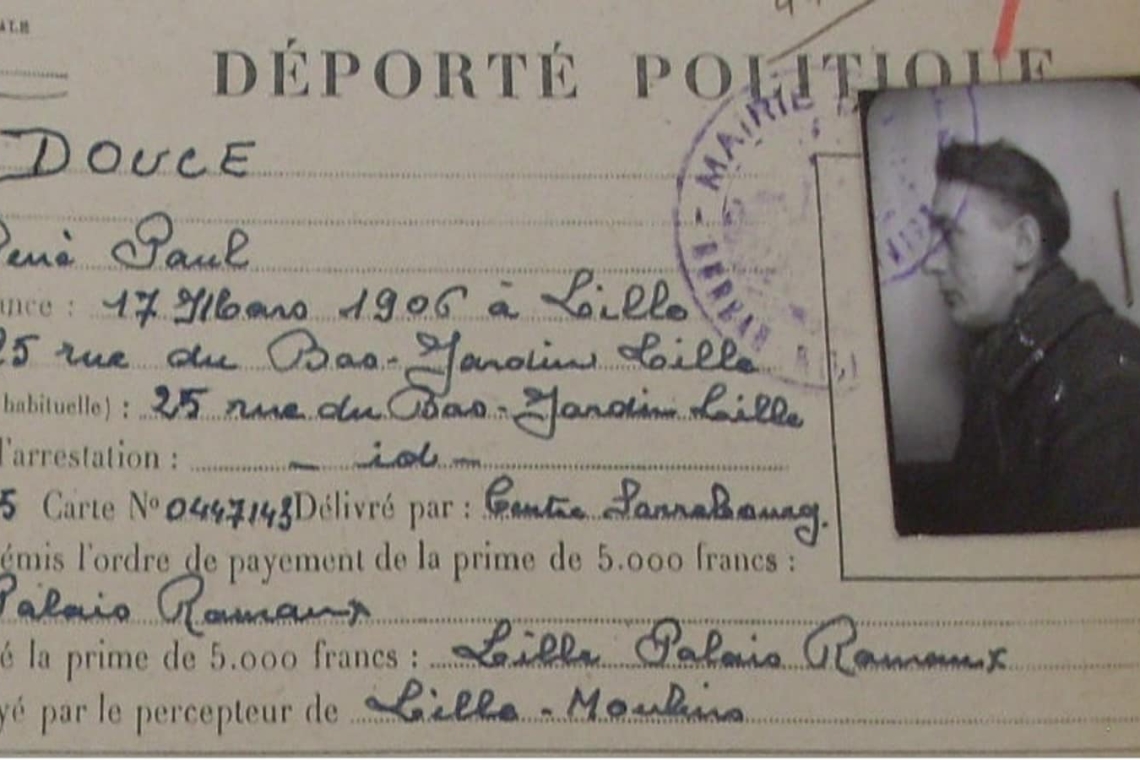 ALE
DÉPORTÉ POLITIQUE
DOUCE
René Paul
ance : 17 Mars 1906 à Lille
25 rue du Bas-Jardin Lille
habituelle) : 25 rue du Bas-Jardin Lille
l'arrestation : - id -
5 Carte N° 0447143 Délivré par : Centre Sarrebourg.
émis l'ordre de payement de la prime de 5.000 francs :
Palais Rameaux
é la prime de 5.000 francs : Lille Palais Rameaux
yé par le percepteur de Lille - Moulins
MAIRIE